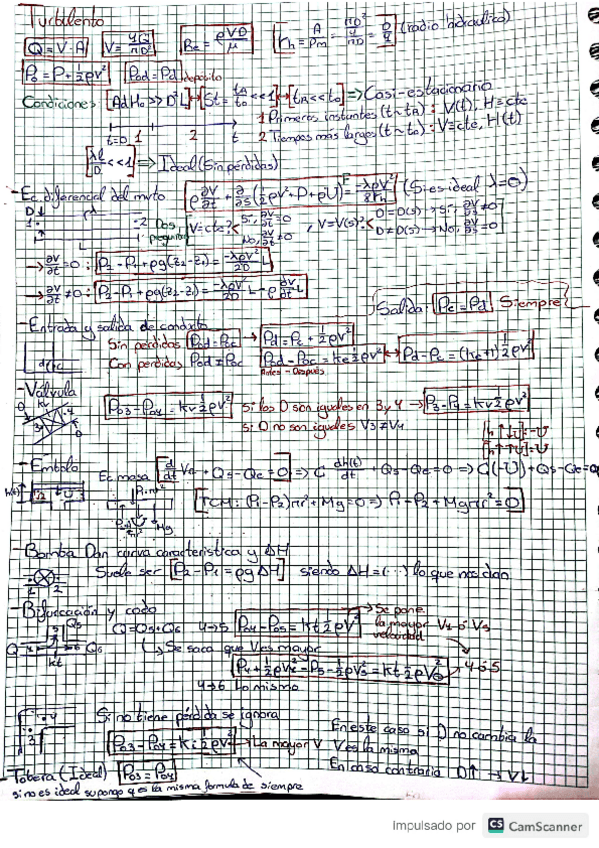 Turbulento
Q = V·A  V = 4Q/πD²  Re = ρVD/μ  rh = A/Pm = (πD²/4)/(πD) = D/4 (radio hidráulico)
Po = P + ½ρV²  Pod = Pd deposito
Condiciones [AdHo >> D²L] [St = tA/to << 1] [tA << to] => Casi-estacionario
1 Primeros instantes (t~tA): V(t), H = cte
t=0 1 2 t 2 Tiempos más largos (t~to): V = cte, H(t)
[λL/D << 1] => Ideal (Sin pérdidas)
- Ec. diferencial del mvto ρ∂V/∂t + ∂/∂s(½ρV² + P + ρU) = -λρV²/8rh (Si es ideal λ=0)
V = cte? < Si, ∂V/∂t = 0 No, ∂V/∂t ≠ 0 , V = V(s)? < D = D(s) → Si, ∂V/∂s ≠ 0 D ≠ D(s) → No, ∂V/∂s = 0
→ ∂V/∂t = 0: P2 - P1 + ρg(z2 - z1) = -λρV²/2D L
→ ∂V/∂t ≠ 0: P2 - P1 + ρg(z2 - z1) = -λρV²/2D L - ρ dV/dt L
Salida: Pc = Pd Siempre
- Entrada y salida de conducto
Sin perdidas Pod = Poc → Pd = Pc + ½ρV²
Con perdidas Pod ≠ Poc Pod - Poc = ke½ρV² ↔ Pd - Pc = (ke+1)½ρV²
Antes - Después
- Válvula
kv Po3 - Po4 = kv½ρV² si los D son iguales en 3 y 4 → P3 - P4 = kv½ρV²
si D no son iguales V3 ≠ V4
[h↑↓U] = -U
[h↑↑U] = U
- Émbolo Ec. masa [d/dt Va + Qs - Qe = 0] => C dh(t)/dt + Qs - Qe = 0 => C(-U) + Qs - Qe = 0
[TCM: (P1 - P2)πr² + Mg = 0 => P1 = P2 + Mgπr² = 0]
Mg
- Bomba Dan curva característica y ΔH
Suele ser [P2 - P1 = ρgΔH] siendo ΔH = (···) lo que nos dan
1 2
- Bifurcación y codo → Se pone la mayor velocidad V4 ó V5
Q5 Q = Q5 + Q6 4→5 Po4 - Po5 = kt½ρV²
Q Q6 Se saca que V es mayor
kt P4 + ½ρV4² - P5 - ½ρV5² = kt½ρV² → 4 ó 5
4→6 Lo mismo
Si no tiene pérdida se ignora En este caso si D no cambia la V es la misma
Po3 - Po4 = k½ρV² → La mayor V
En caso contrario D↑ → V↓
- Tobera (Ideal) Po3 = Po4
si no es ideal supongo q es la misma formula de siempre
Impulsado por CS CamScanner